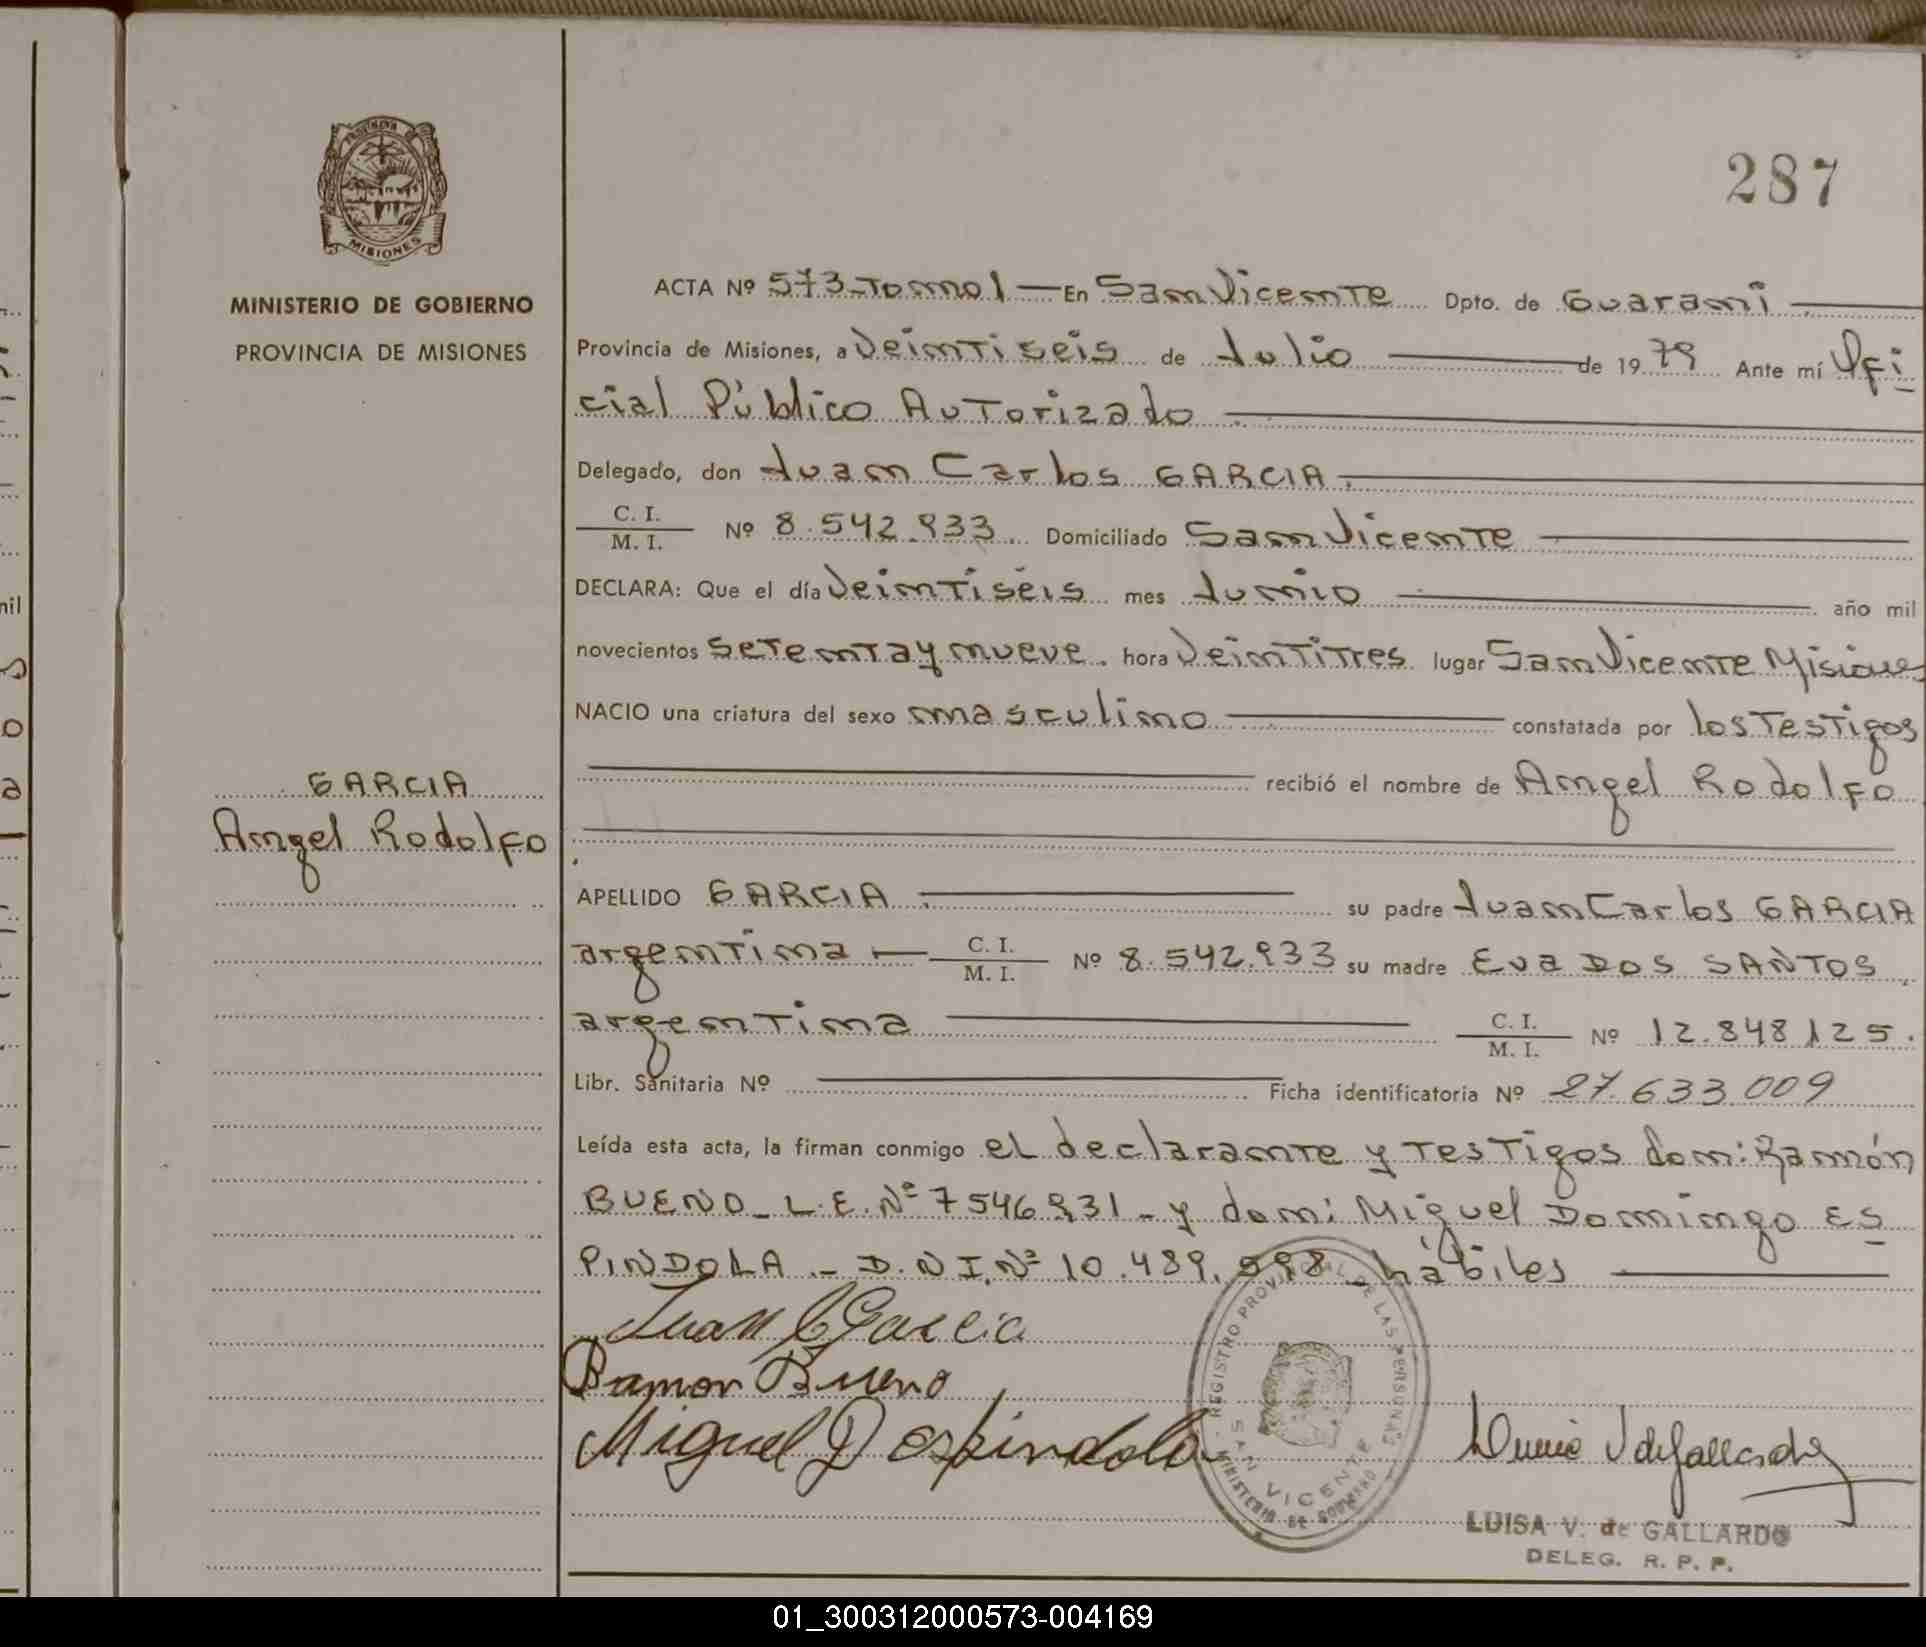 287
PROVINCIA DE
MISIONES
MINISTERIO DE GOBIERNO
PROVINCIA DE MISIONES
GARCIA
Angel Rodolfo
ACTA Nº 573-Tomo 1 — En San Vicente Dpto. de Guarani
Provincia de Misiones, a Veintiseis de Julio de 1979 Ante mí Ofi
cial Público Autorizado
Delegado, don Juan Carlos GARCIA.
C. I.
M. I. Nº 8.542.933 Domiciliado San Vicente
DECLARA: Que el día Veintiséis mes Junio año mil
novecientos setenta y nueve. hora Veintitres lugar San Vicente Misiones
NACIO una criatura del sexo masculino constatada por los Testigos
recibió el nombre de Angel Rodolfo
APELLIDO GARCIA su padre Juan Carlos GARCIA
argentina — C. I.
M. I. Nº 8.542.933 su madre Eva DOS SANTOS
argentina C. I.
M. I. Nº 12.848.125.
Libr. Sanitaria Nº Ficha identificatoria Nº 27.633.009
Leída esta acta, la firman conmigo el declarante y Testigos don: Ramón
BUENO_ L.E. Nº 7546931 - y don: Miguel Domingo ES
PINDOLA _ D.N.I. Nº 10.489.598 hábiles
Juan C Garcia
Ramon Bueno
Miguel D espindola
REGISTRO PROVINCIAL DE LAS PERSONAS
SAN VICENTE
MINISTERIO DE GOBIERNO
LUISA V. de GALLARDO
DELEG. R. P. P.
01_300312000573-004169